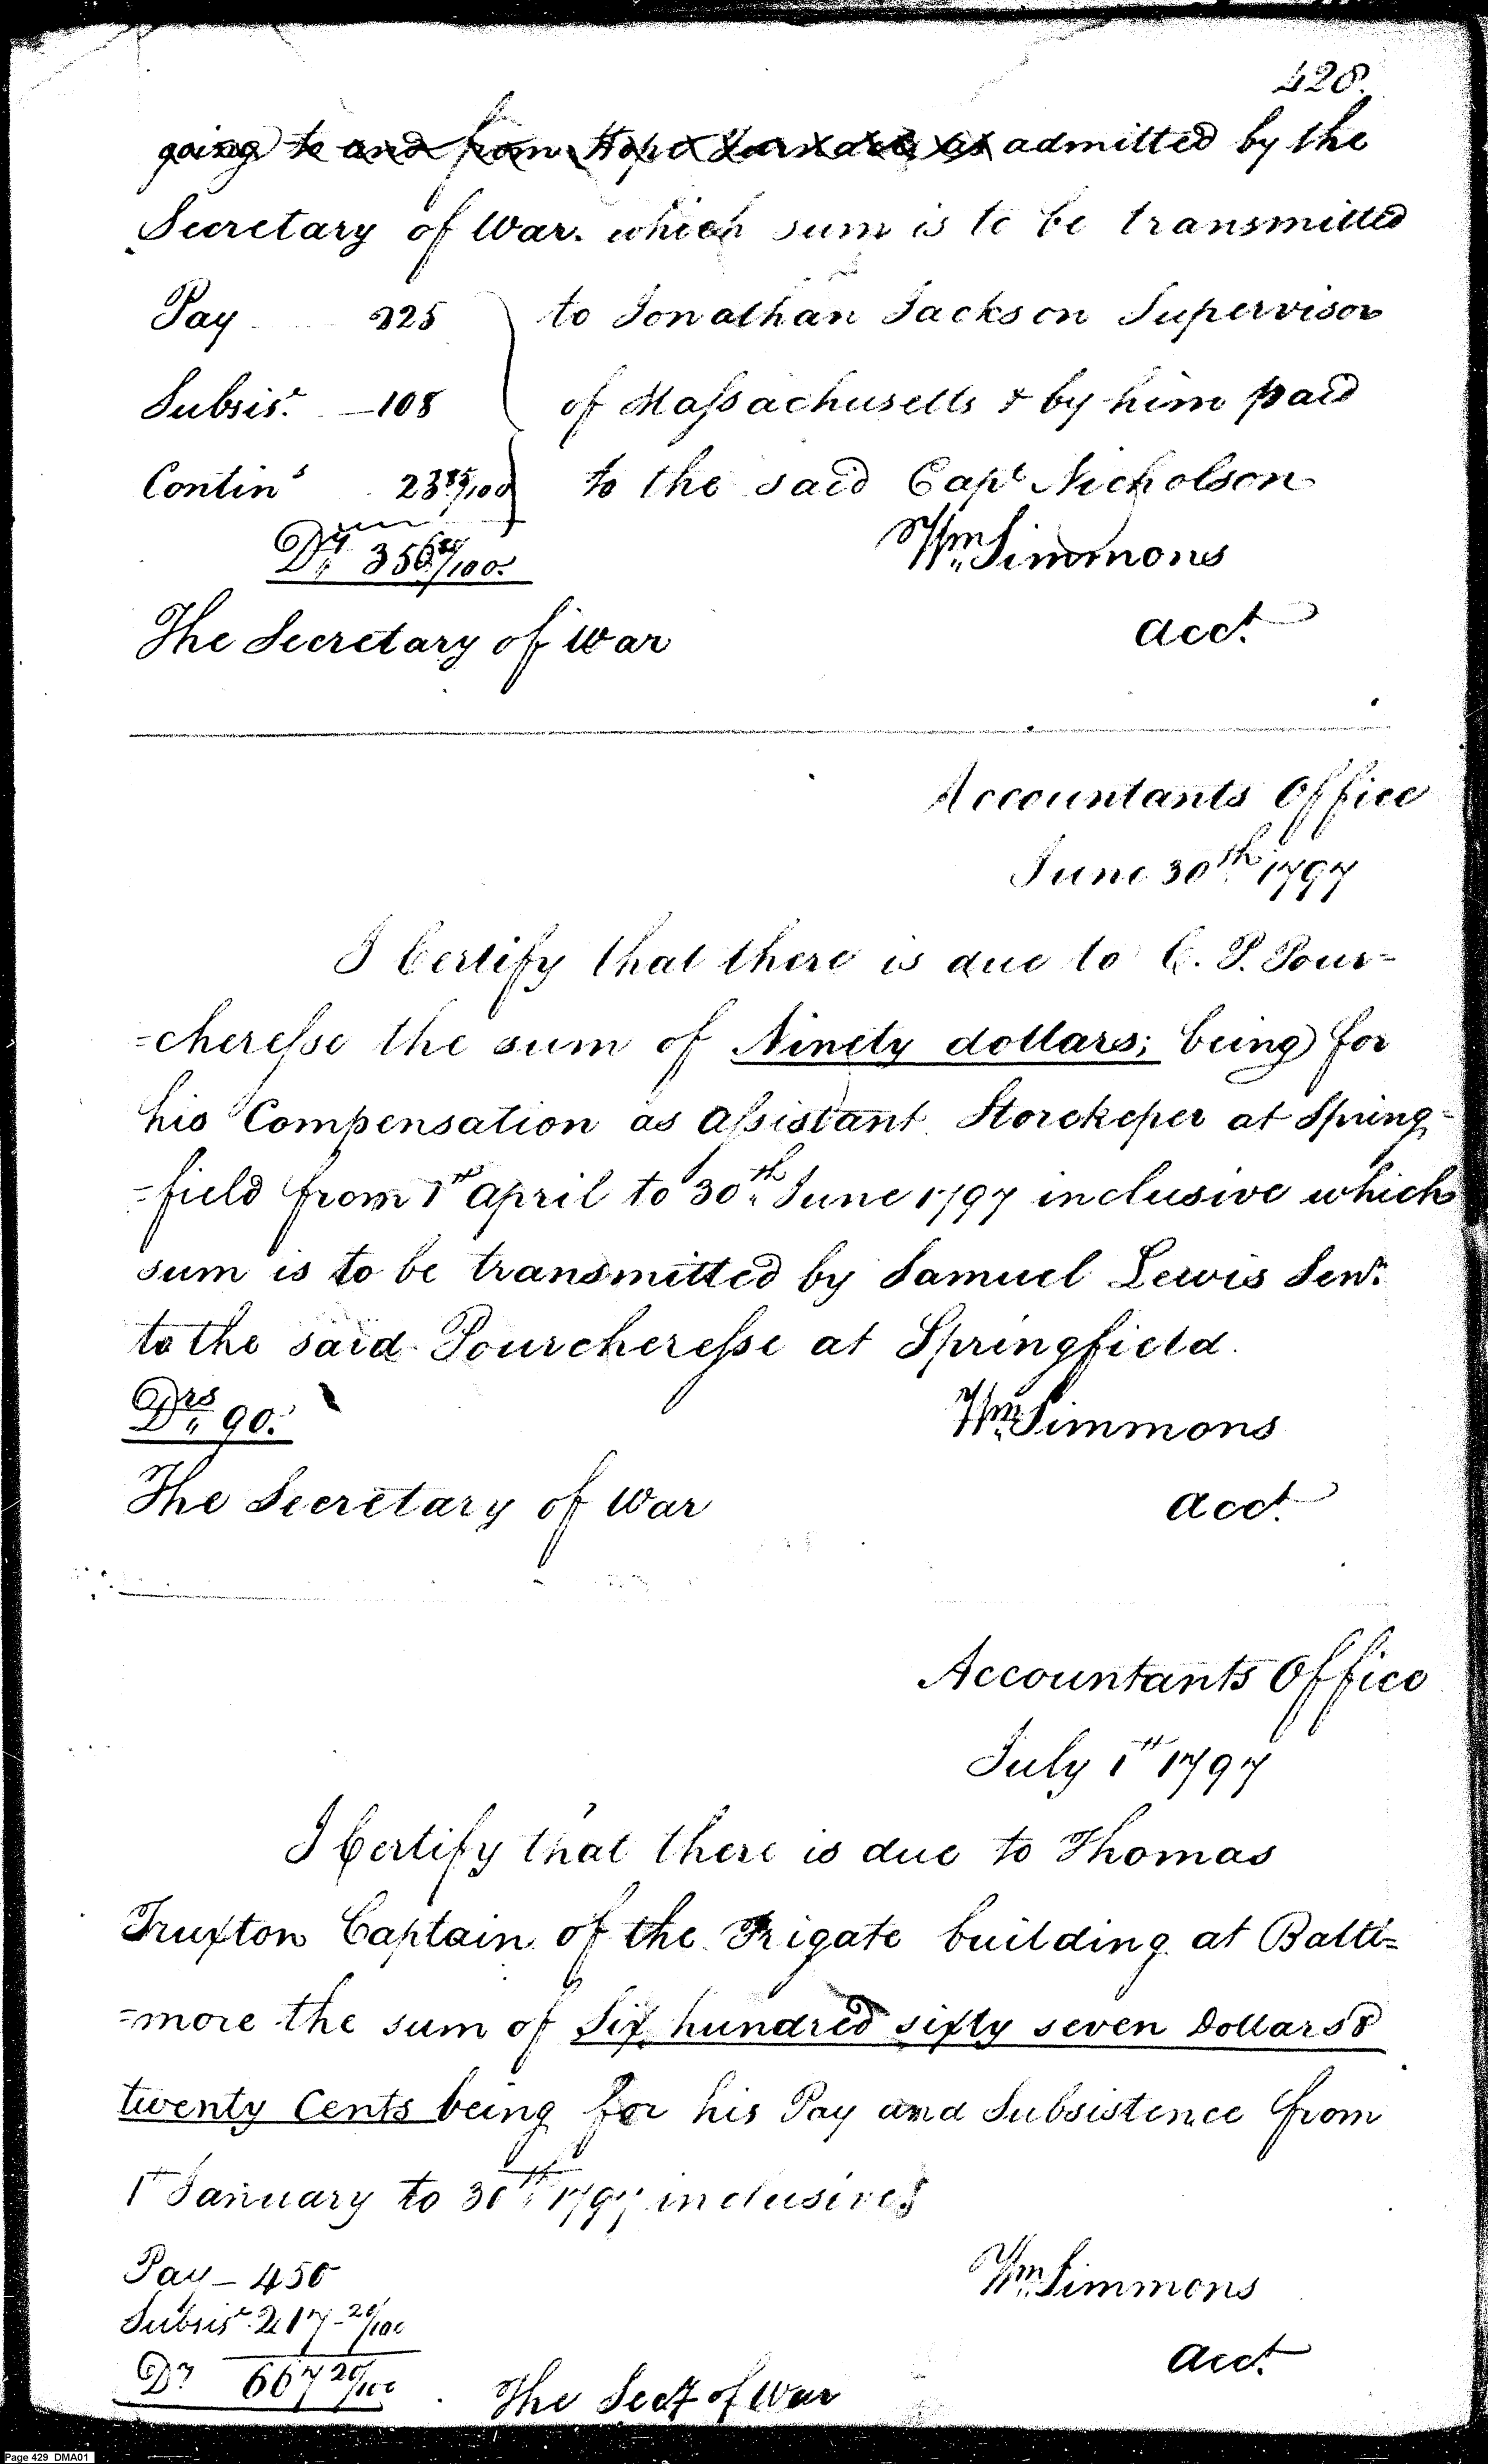 428.
going to and from Hope Furnace as admitted by the
Secretary of War. which sum is to be transmitted
Pay 225 to Jonathan Jackson Supervisor
Subsis.ͭ 108 of Maſsachusetts & by him paid
Contin.ˢ 23 85/100 to the said Capᵗ Nicholson
Dʳˢ 356 85/100. Wm Simmons
The Secretary of War acct.
Accountants Office
June 30th 1797
I Certify that there is due to C. P. Pour=
=chereſse the sum of Ninety dollars; being for
his Compensation as aſsistant Storekeper at Spring=
=field from 1st april to 30th June 1797 inclusive which
sum is to be transmitted by Samuel Lewis Senr.
to the said Pourchereſse at Springfield.
Drs 90. Wm Simmons
The Secretary of War acct.
Accountants Office
July 1st 1797
I Certify that there is due to Thomas
Truxton Captain of the Frigate building at Balti=
=more the sum of Six hundred sixty seven Dollars &
twenty Cents being for his Pay and Subsistence from
1st January to 30th 1797 inclusive
Pay – 450 Wm Simmons
Subsis.ͭ 217 20/100
Drs 667 20/100 The Secy of War acct.
Page 429 DMA01